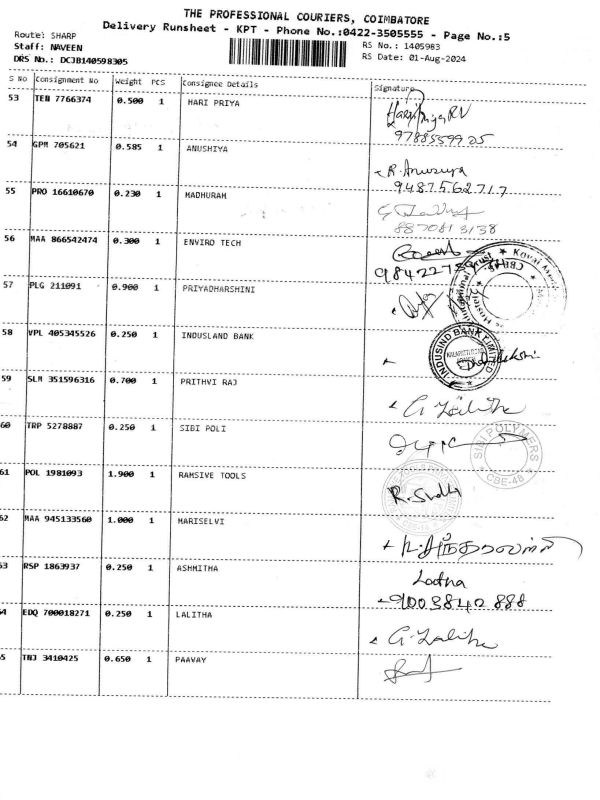 THE PROFESSIONAL COURIERS, COIMBATORE
Delivery Runsheet - KPT - Phone No.:0422-3505555 - Page No.:5
Route: SHARP
RS No.: 1405983
Staff: NAVEEN
RS Date: 01-Aug-2024
DRS No.: DCJB140598305
S No Consignment No Weight PCS Consignee Details Signature
53 TEN 7766374 0.500 1 HARI PRIYA
9788559925
54 GPM 705621 0.585 1 ANUSHIYA R.Anusuya
9487562717
55 PRO 16610670 0.230 1 MADHURAM
8870813138
56 MAA 866542474 0.300 1 ENVIRO TECH
57 PLG 211091 0.900 1 PRIYADHARSHINI
58 VPL 405345526 0.250 1 INDUSLAND BANK
INDUSIND BANK LIMITED
59 SLM 351596316 0.700 1 PRITHVI RAJ G Lalitha
60 TRP 5278887 0.250 1 SIBI POLI
SIBI POLYMERS
CBE-48
61 POL 1981093 1.900 1 RAMSIVE TOOLS
62 MAA 945133560 1.000 1 MARISELVI
63 RSP 1863937 0.250 1 ASHMITHA
9003840888
64 EDQ 700018271 0.250 1 LALITHA G Lalitha
65 TNJ 3410425 0.650 1 PAAVAY